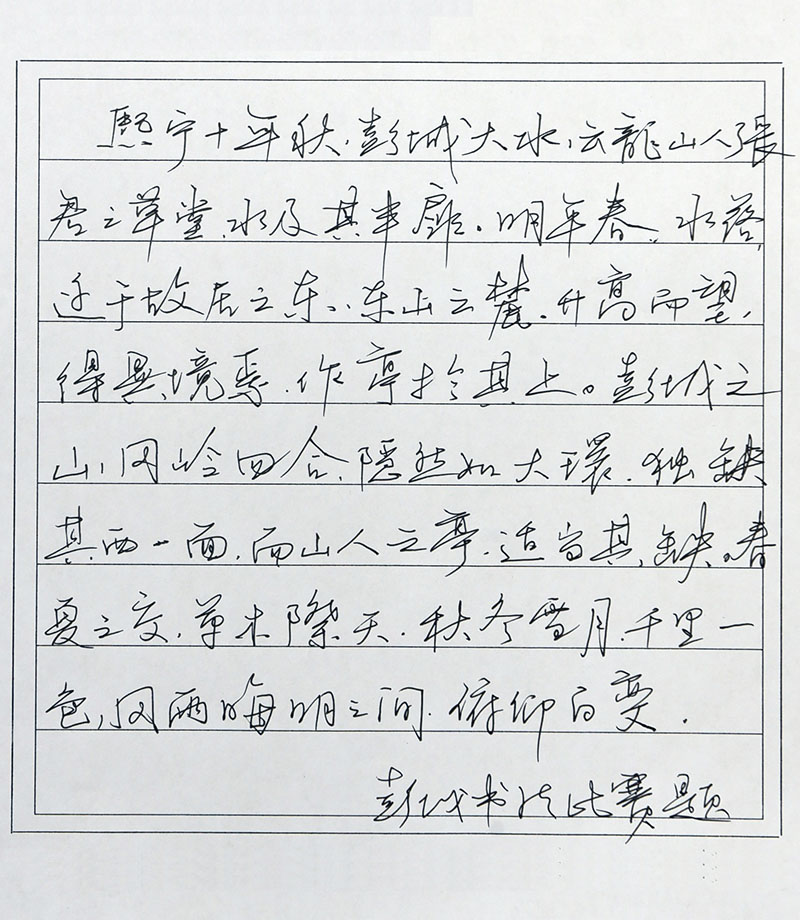 熙宁十年秋，彭城大水，云龍山人張
君之草堂，水及其半扉。明年春，水落，
迁于故居之东，东山之麓。升高而望，
得異境焉，作亭於其上。彭城之
山，冈岭四合，隱然如大環，独缺
其西一面，而山人之亭，适当其缺。春
夏之交，草木際天，秋冬雪月，千里一
色，风雨晦明之间，俯仰百变。
彭城书法比赛题